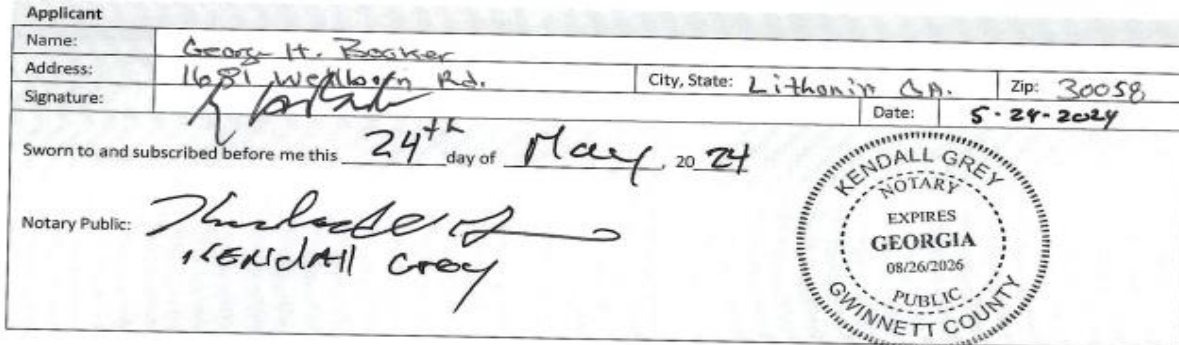 Applicant
Name: George H. Booker
Address: 1681 Wellborn Rd. City, State: Lithonia GA. Zip: 30058
Signature: Date: 5-24-2024
Sworn to and subscribed before me this 24th day of May, 20 24
Notary Public:
KENdAll Grey
KENDALL GREY
NOTARY
EXPIRES
GEORGIA
08/26/2026
PUBLIC
GWINNETT COUNTY